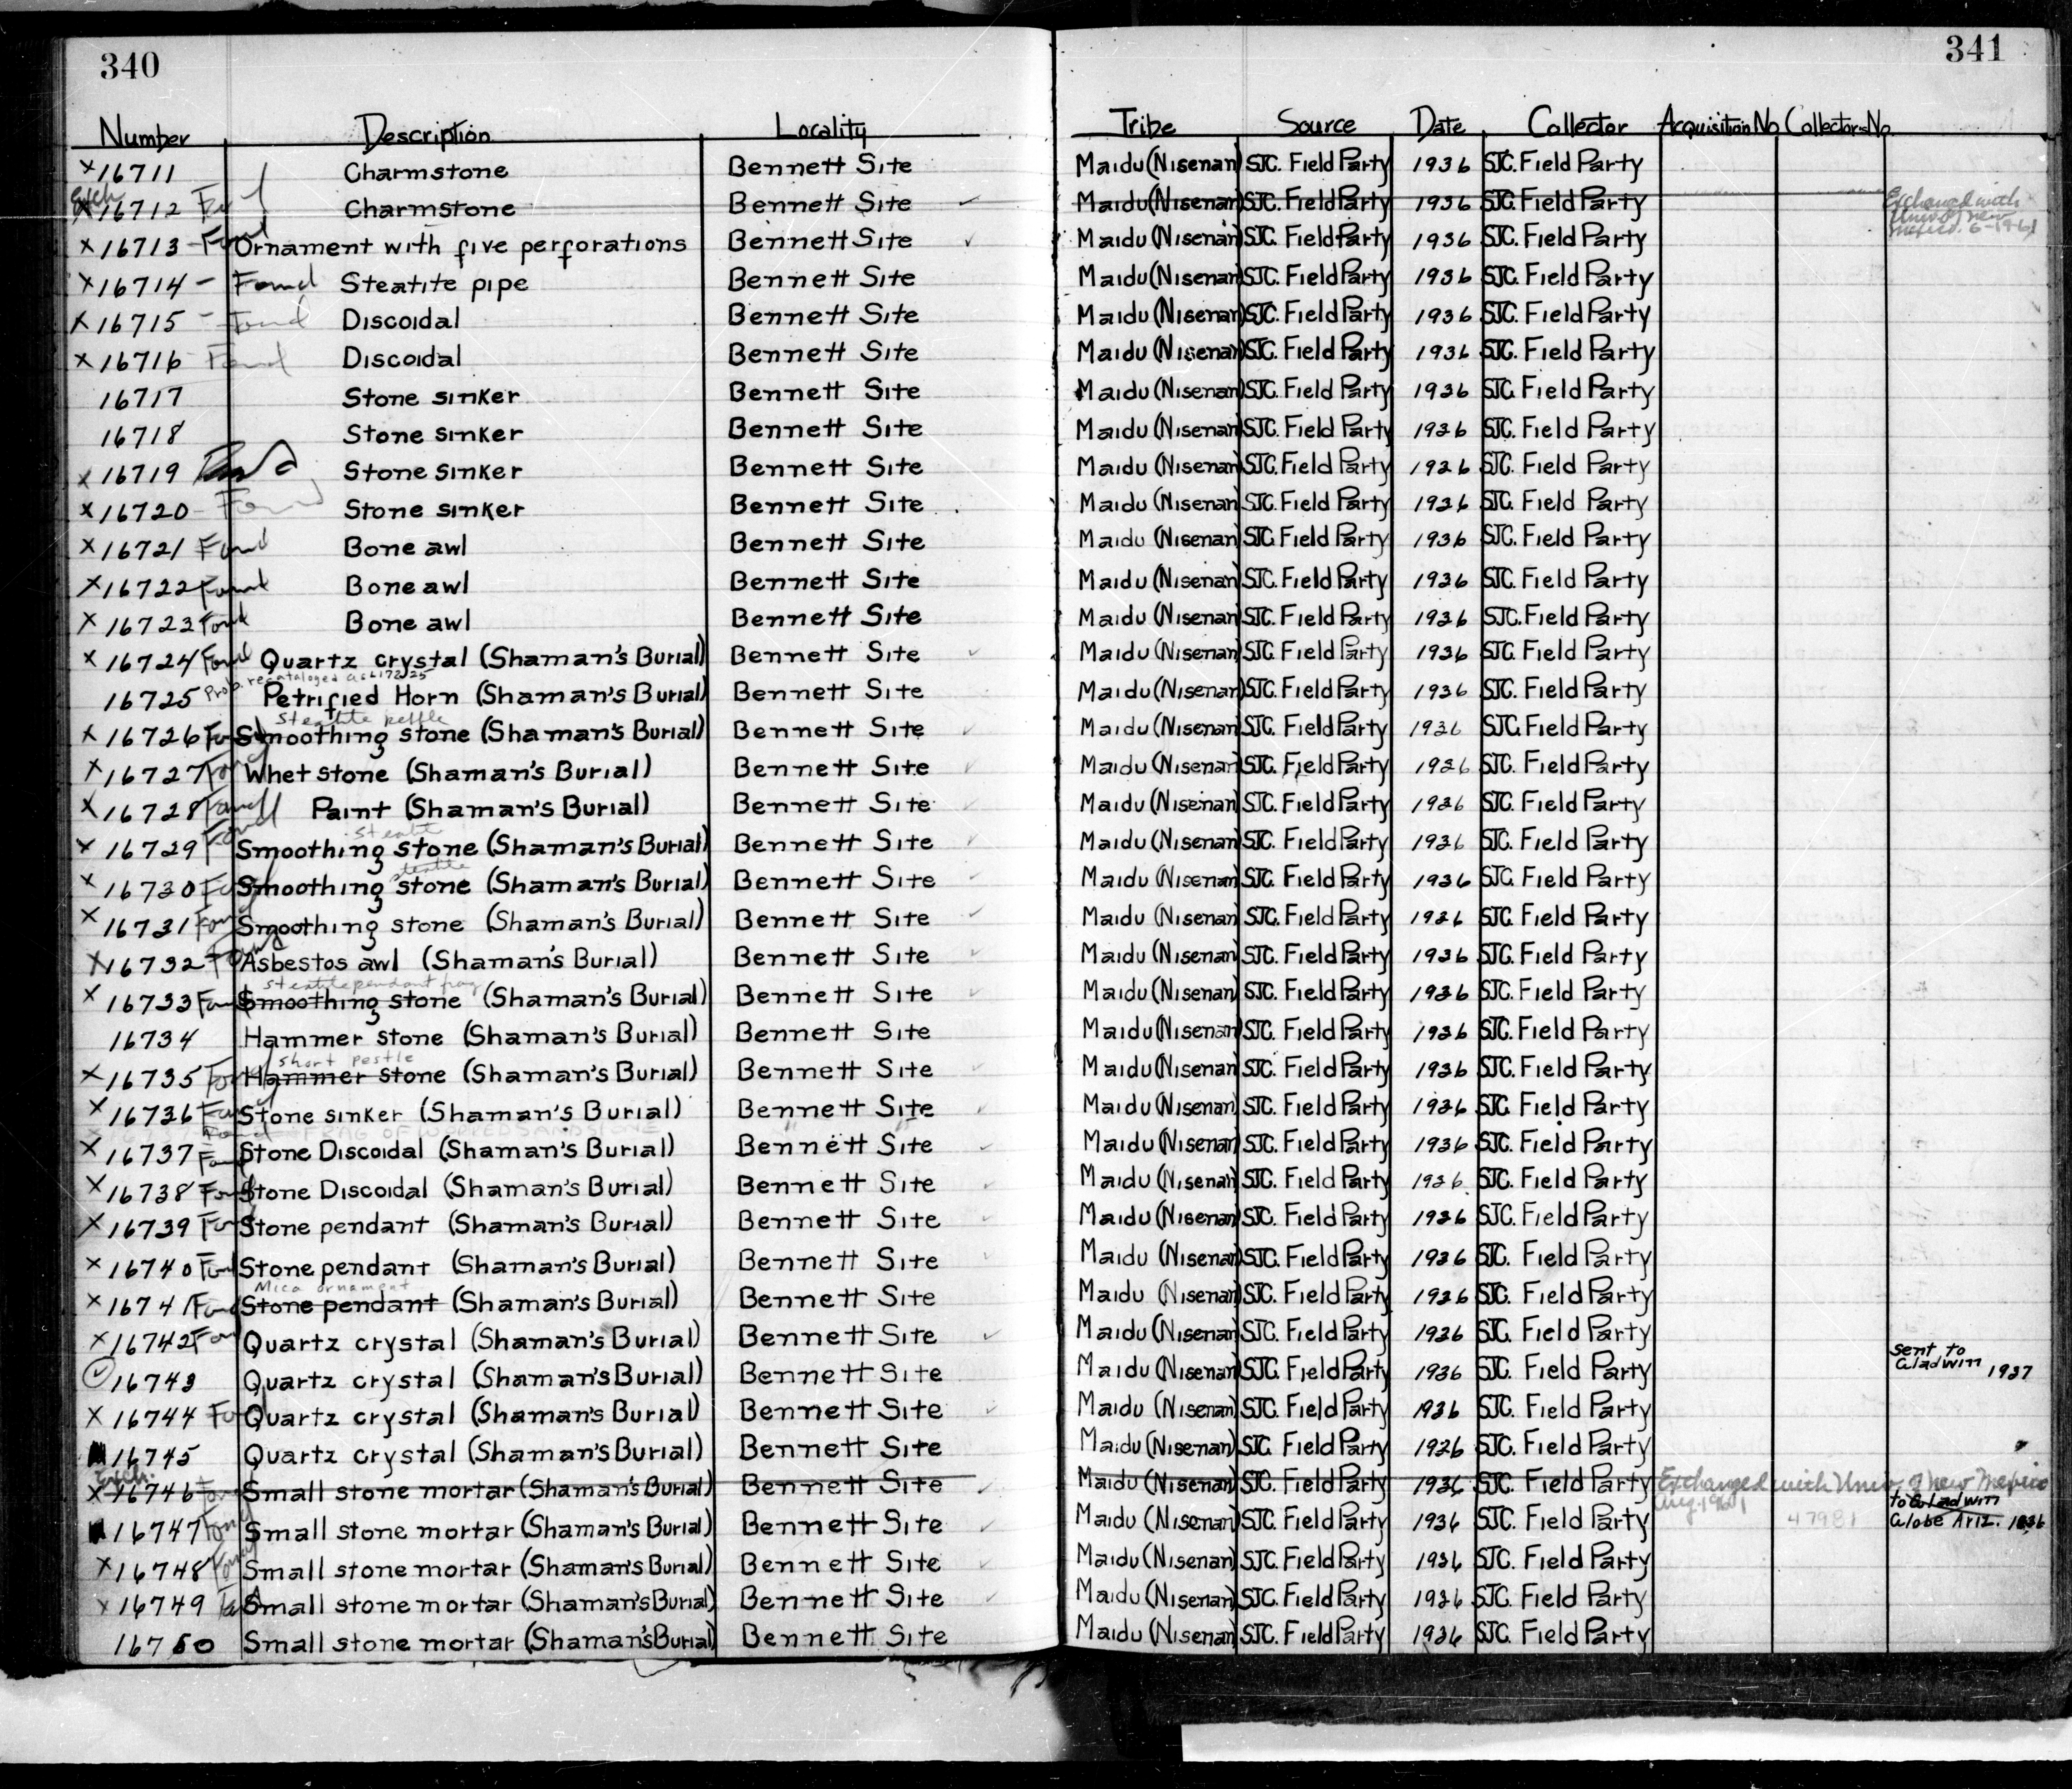 340
341
Number Description Locality Tribe Source Date Collector Acquisition No Collectors No.
x 16711 Charmstone Bennett Site Maidu (Nisenan) SJC. Field Party 1936 SJC. Field Party
Exch.
x 16712 Charmstone Bennett Site ✓ Maidu (Nisenan) SJC. Field Party 1936 SJC. Field Party Exchanged with Univ. of New Mexico. 6-19-61
x 16713 - Found Ornament with five perforations Bennett Site ✓ Maidu (Nisenan) SJC. Field Party 1936 SJC. Field Party
x 16714 - Found Steatite pipe Bennett Site Maidu (Nisenan) SJC. Field Party 1936 SJC. Field Party
x 16715 - Found Discoidal Bennett Site Maidu (Nisenan) SJC. Field Party 1936 SJC. Field Party
x 16716 - Found Discoidal Bennett Site Maidu (Nisenan) SJC. Field Party 1936 SJC. Field Party
16717 Stone sinker Bennett Site Maidu (Nisenan) SJC. Field Party 1936 SJC. Field Party
16718 Stone sinker Bennett Site Maidu (Nisenan) SJC. Field Party 1936 SJC. Field Party
x 16719 Found Stone sinker Bennett Site Maidu (Nisenan) SJC. Field Party 1936 SJC. Field Party
x 16720 - Found Stone sinker Bennett Site Maidu (Nisenan) SJC. Field Party 1936 SJC. Field Party
x 16721 Found Bone awl Bennett Site Maidu (Nisenan) SJC. Field Party 1936 SJC. Field Party
x 16722 Found Bone awl Bennett Site Maidu (Nisenan) SJC. Field Party 1936 SJC. Field Party
x 16723 Found Bone awl Bennett Site Maidu (Nisenan) SJC. Field Party 1936 SJC. Field Party
x 16724 Found Quartz crystal (Shaman's Burial) Bennett Site ✓ Maidu (Nisenan) SJC. Field Party 1936 SJC. Field Party
Prob. recataloged as
16725 Petrified Horn (Shaman's Burial) Bennett Site Maidu (Nisenan) SJC. Field Party 1936 SJC. Field Party
steatite
x 16726 Found Smoothing stone (Shaman's Burial) Bennett Site ✓ Maidu (Nisenan) SJC. Field Party 1936 SJC. Field Party
x 16727 Found Whet stone (Shaman's Burial) Bennett Site ✓ Maidu (Nisenan) SJC. Field Party 1936 SJC. Field Party
x 16728 Found Paint (Shaman's Burial) Bennett Site ✓ Maidu (Nisenan) SJC. Field Party 1936 SJC. Field Party
x 16729 Found Smoothing stone (Shaman's Burial) Bennett Site ✓ Maidu (Nisenan) SJC. Field Party 1936 SJC. Field Party
steatite
x 16730 Found Smoothing stone (Shaman's Burial) Bennett Site ✓ Maidu (Nisenan) SJC. Field Party 1936 SJC. Field Party
x 16731 Found Smoothing stone (Shaman's Burial) Bennett Site ✓ Maidu (Nisenan) SJC. Field Party 1936 SJC. Field Party
x 16732 - Found Asbestos awl (Shaman's Burial) Bennett Site ✓ Maidu (Nisenan) SJC. Field Party 1936 SJC. Field Party
steatite pendant frag
x 16733 Found Smoothing stone (Shaman's Burial) Bennett Site ✓ Maidu (Nisenan) SJC. Field Party 1936 SJC. Field Party
16734 Hammer stone (Shaman's Burial) Bennett Site Maidu (Nisenan) SJC. Field Party 1936 SJC. Field Party
short pestle
x 16735 Found Hammer stone (Shaman's Burial) Bennett Site ✓ Maidu (Nisenan) SJC. Field Party 1936 SJC. Field Party
x 16736 Found Stone sinker (Shaman's Burial) Bennett Site ✓ Maidu (Nisenan) SJC. Field Party 1936 SJC. Field Party
Found FRAG OF WORKED SANDSTONE " "
x 16737 Found Stone Discoidal (Shaman's Burial) Bennett Site ✓ Maidu (Nisenan) SJC. Field Party 1936 SJC. Field Party
x 16738 Found Stone Discoidal (Shaman's Burial) Bennett Site ✓ Maidu (Nisenan) SJC. Field Party 1936 SJC. Field Party
x 16739 Found Stone pendant (Shaman's Burial) Bennett Site ✓ Maidu (Nisenan) SJC. Field Party 1936 SJC. Field Party
x 16740 Found Stone pendant (Shaman's Burial) Bennett Site ✓ Maidu (Nisenan) SJC. Field Party 1936 SJC. Field Party
Mica ornament
x 16741 Found Stone pendant (Shaman's Burial) Bennett Site ✓ Maidu (Nisenan) SJC. Field Party 1936 SJC. Field Party
x 16742 Found Quartz crystal (Shaman's Burial) Bennett Site ✓ Maidu (Nisenan) SJC. Field Party 1936 SJC. Field Party
✓ 16743 Quartz crystal (Shaman's Burial) Bennett Site Maidu (Nisenan) SJC. Field Party 1936 SJC. Field Party sent to Gladwin 1937
x 16744 Found Quartz crystal (Shaman's Burial) Bennett Site ✓ Maidu (Nisenan) SJC. Field Party 1936 SJC. Field Party
16745 Quartz crystal (Shaman's Burial) Bennett Site Maidu (Nisenan) SJC. Field Party 1936 SJC. Field Party
Exch.
x 16746 Found Small stone mortar (Shaman's Burial) Bennett Site ✓ Maidu (Nisenan) SJC. Field Party 1936 SJC. Field Party Exchanged with Univ. of New Mexico Aug. 1961
16747 Found Small stone mortar (Shaman's Burial) Bennett Site ✓ Maidu (Nisenan) SJC. Field Party 1936 SJC. Field Party 47981 to Gladwin Globe Ariz. 1936
x 16748 Found Small stone mortar (Shaman's Burial) Bennett Site ✓ Maidu (Nisenan) SJC. Field Party 1936 SJC. Field Party
x 16749 Small stone mortar (Shaman's Burial) Bennett Site ✓ Maidu (Nisenan) SJC. Field Party 1936 SJC. Field Party
16750 Small stone mortar (Shaman's Burial) Bennett Site Maidu (Nisenan) SJC. Field Party 1936 SJC. Field Party